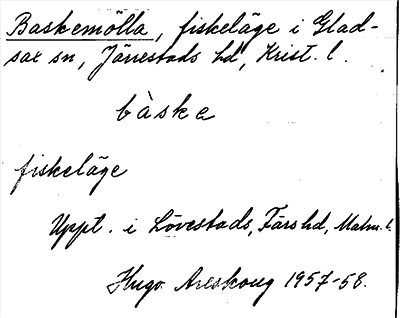 Baskemölla, fiskeläge i Glad-
sax sn, Järrestads hd, Krist. l.
bàske
fiskeläge
Uppt. i Lövestads, Färs hd, Malm. l.
Hugo Areskoug 1957-58.